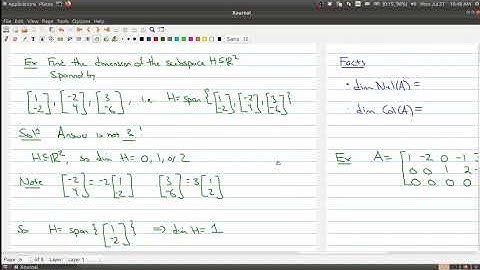 Applications Places
Xournal
(0:15, 96%) Mon Jul 27 10:48 AM
File Edit View Journal Tools Options Help
Sans 12
Ex Find the dimension of the subspace H≤ℝ²
Spanned by
[1 -2], [-2 4], [3 -6], i.e. H=span{[1 -2],[-2 4],[3 -6]}
Solⁿ Answer is not 3!
H≤ℝ², so dim H=0,1,or 2
Note [-2 4]=-2[1 -2] [3 -6]=3[1 2]
So H=span{[1 -2]} ⟹ dim H=1
Facts
• dim Nul(A)=
• dim Col(A)=
Ex A=[1 -2 0 -1
0 0 1 2
0 0 0 0
Page
Layer: Layer 1
Xournal